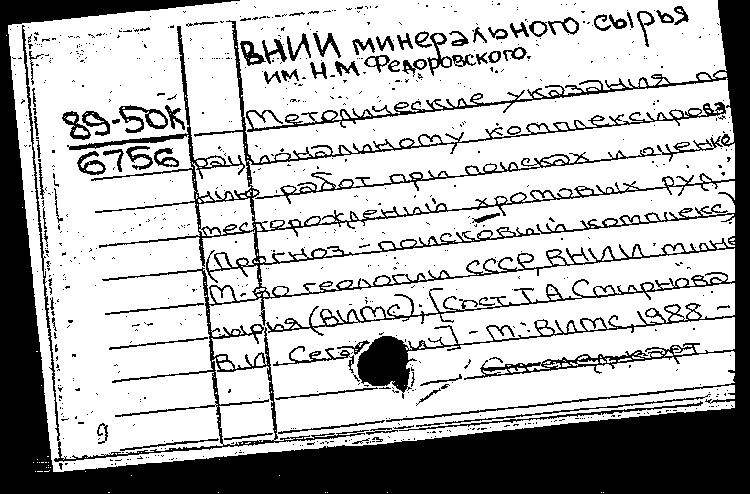 ВНИИ минерального сырья
им. Н.М. Федоровского.
89-50К
6756
Методические указания по
рациональному комплексирова-
нию работ при поисках и оценке
месторождений хромовых руд:
(Прогноз.-поисковый комплекс)
М-во геологии СССР, ВНИИ мине
сырья (ВИМС); [Сост. Т.А. Смирнова
В.И.] - М.: ВИМС, 1988 -
См. след. карт.
9